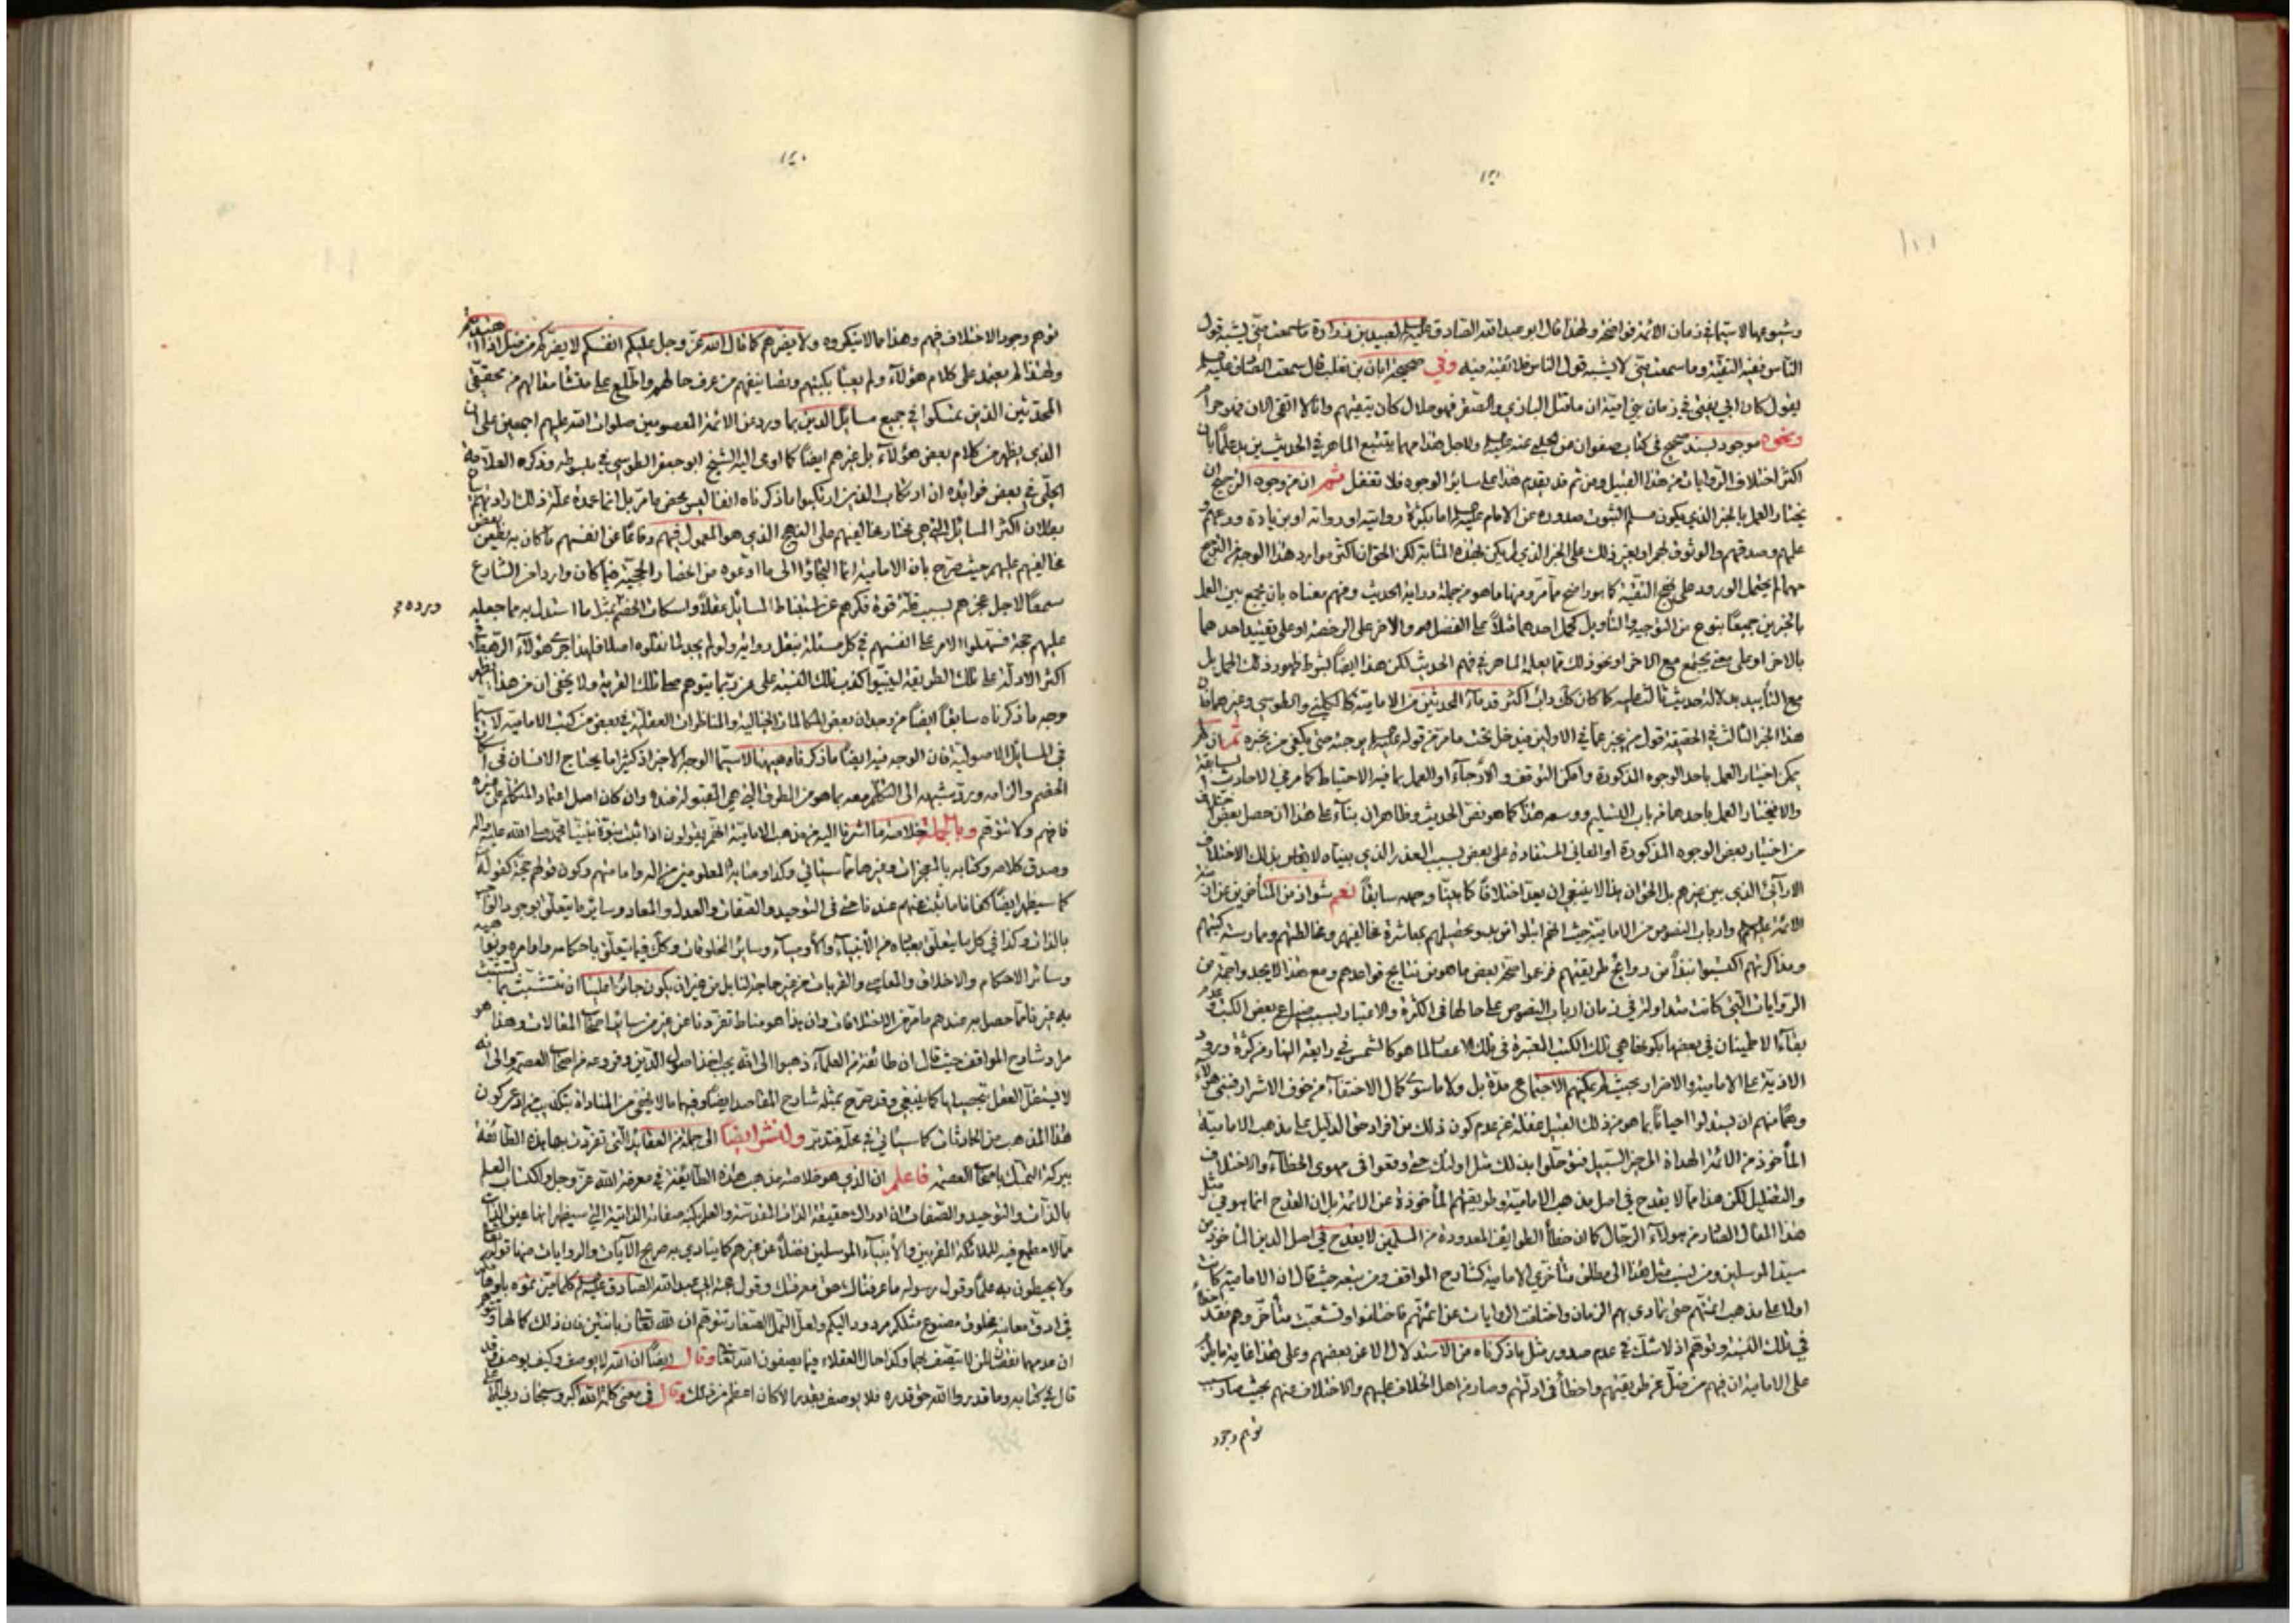 وشيوعها لاسيما في زمان الأئمة فواضحة ولهذا قال ابو عبد الله الصادق عليه السلم لعبيد بن زرارة ما سمعت منّي يشبه قول
النّاس ففيه التقيّة وما سمعت منّي لا يشبه قول الناس فلا تقيّة فيه وفي صحيحة ابان بن تغلب قال سمعت الصّادق عليه السلم
يقول كان ابي يفتي في زمان بني اميّة ان ما قتل البازي والصّقر فهو حلال كان يتّقيهم وانا لا اتّقي الان فهو حرام
ونحوه موجود بسند صحيح في كتاب صفوان عن عنه عليه السلم ولاجل هذا مهما يتتبع الماهر في الحديث يزيد علمًا بان
اكثر اختلاف الرّوايات من هذا القبيل ومن ثم قد يقدم هذا على سائر الوجوه فلا تغفل ثمّ ان من وجوه الترجيح ان
يختار العمل بالخبر الذي يكون مسلم الثبوت صدوره عن الامام عليه السلم اما بكثرة روايته او رواته او بزيادة ورعهم و
علمهم وصدقهم والوثوق لهم او بغير ذلك على الخبر الذي لم يكن بهذه المثابة لكن الحق ان اكثر موارد هذا الوجه من الترجيح
مهما لم يحتمل الورود على نهج التقيّة كما هو واضح ممّا مرّ ومنها ما هو من جملة دراية الحديث وفهم معناه بان يجمع بين العمل
بالخبرين جميعًا بنوع من التوجيه والتأويل كحمل احدهما مثلاً على الفضل والاخر على الرخصة او على تقييد احدهما
بالاخر او على معنى يجتمع مع الاخر او نحو ذلك ممّا يعلمه الماهر في فهم الحديث لكن هذا ايضًا بشرط ظهور ذلك الحمل بل
مع التأييد بدلالة حديث ثالث عليه كما كان ذلك دأب اكثر قدماء المحدثين من الامامية كالكليني والطوسي وغيرهما فان
هذا الخبر الثالث في الحقيقة قول من يخبر عمّا في الاولين فيدخل تحت ما مرّ من قوله عليه السلم يوجبه حتى يلقى من يخبره ثمّ ان لم
يمكن اختيار العمل باحد الوجوه المذكورة وامكن التوقف والارجاء او العمل بما فيه الاحتياط كما مرّ في الاحاديث السابقة
والا فيختار العمل باحدهما من باب التسليم ووسعه هذا كما هو نصّ الحديث وظاهر ان بناء على هذا ان حصل بعض اختلاف
من اختيار بعض الوجوه المذكورة او المعاني المستفادة على بعض بسبب العذر الذي بيناه لا يقاس بذلك الاختلاف
الارآئي الذي بين غيرهم بل الحق ان هذا لا ينبغي ان يعدّ اختلافًا كما بينّا وجهه سابقًا نعم شواذ من المتأخرين عن زمن
الائمة عليهم السلم وارباب النصوص من الامامية حيث انهم ابتلوا في بدو تحصيلهم بمعاشرة مخالفيهم ومخالطتهم وممارسة كتبهم
ومذاكرتهم اكتسبوا نبذًا من روايح طريقتهم فزعموا صحّة بعض ما هو من نتايج قواعدهم ومع هذا لا يجدوا جمّة من
الرّوايات الّتي كانت متداولة في زمان ارباب النصوص على حالها في الكثرة والاعتبار بسبب ضياع بعض الكتب و عدم
بقاء الاطمينان في بعضها بكونها هي تلك الكتب المعتبرة في تلك الاعصار لما هو كالشمس في رابعة النهار من كثرة ورود
الاذيّة على الامامية والاضرار بحيث لم يمكنهم الاجتماع مدّة بل ولا ما سوى كمال الاختفاء من خوف الاشرار فبنى هؤلاء
وهمًا منهم ان يستدلوا احيانًا بما هو من ذلك القبيل غفلة عن عدم كون ذلك من افراد حق الدليل على مذهب الامامية
المأخوذ من الائمة الهداة الى خير السّبيل فتوحّلوا بذلك مثل اولئك حتى وقعوا في مهوى الخطاء والاختلاف
والتضليل لكن هذا ممّا لا يقدح في اصل مذهب الامامية وطريقتهم المأخوذة عن الائمة بل ان القدح انما هو في مثل
هذا المقال الصادر من هؤلاء الرجال كما ان خطأ الطوايف المعدودة من المسلمين لا يقدح في اصل الدين الماخوذ من
سيّد المرسلين ومن نسب مثل هذا الى مطلق متأخري الامامية كشارح المواقف ومن تبعه حيث قال ان الامامية كانت
اولا على مذهب ائمتهم حتى تمادى بهم الزمان واختلفت الروايات عن ائمتهم فاختلفوا وتشعبت متأخروهم فقد اخطأ
في تلك النسبة وتوهم اذ لا شك في عدم صدور مثل ما ذكرناه من الاستدلال الا عن بعضهم وعلى هذا غاية ما يلزم
على الامامية ان فيهم من ضلّ عن طريقتهم واخطأ في ادلّتهم وصار من اهل الخلاف عليهم والاختلاف عنهم بحيث صار سبب
توهم وجود
توهم وجود الاختلاف فيهم وهذا مما لا ننكره ولا يضرهم كما قال الله عزّ وجل عليكم انفسكم لا يضركم من ضلّ اذا اهتديتم
ولهذا لم يعتمد على كلام هؤلاء ولم يعبأ بكتبهم وتصانيفهم من عرف حالهم واطّلع على منشأ مقالهم من محققي
المحدّثين الذين تمسّكوا في جميع مسائل الدين بما ورد عن الائمة المعصومين صلوات الله عليهم اجمعين على ان
الذي يظهر من كلام بعض هؤلاء بل غيرهم ايضًا كما اومى اليه الشيخ ابو جعفر الطوسي في مبسوطه وذكره العلامة
الحلّي في بعض فوائده ان ارتكاب الذين ارتكبوا ما ذكرناه انفا ليس بمحض ما مرّ بل انما عمدة علّة ذلك ارادتهم
بطلان اكثر المسائل التي هي مختار مخالفيهم على النهج الذي هو المعمول فيهم ودفاعًا عن انفسهم ما كان به يطعن بعض
مخالفيهم عليهم حيث صرّح بان الامامية انما التجاؤا الى ما ادعوه من انحصار الحجيّة فيما كان واردا من الشارع
سمعًا لاجل عجزهم بسبب قلّة قوة فكرهم عن استنباط المسائل عقلاً واسكات الخصم بمثل ما استدل به مما جعله
عليهم حجة فسهّلوا الامر على انفسهم في كل مسئلة بنقل رواية ولو لم يجدوا ما نقلوه اصلا فلهذا اجرى هؤلاء الرّهط
اكثر الادلّة على تلك الطريقة ليتبيّن كذب تلك النسبة على من ربّما يتوهم صحة تلك الفرية ولا يخفى ان من هذا يظهر
وجه ما ذكرناه سابقًا ايضًا من وجدان بعض المكالمات الخيالية والمناظرات العقليّة في بعض من كتب الامامية لاسيما
في المسائل الاصولية فان الوجه فيه ايضًا ما ذكرناه ههنا لاسيّما الوجه الاخير اذ كثيرا ما يحتاج الانسان في اسكات
الخصم والزامه وردّ شبهته الى التكلّم معه بما هو من الطرق التي هي المقبولة عنده وان كان اصل اعتماد المتكلّم على غيره
فافهم ولا تتوهّم وبالجملة خلاصة ما اشرنا اليه من مذهب الامامية انّهم يقولون اذا ثبت نبوّة نبيّنا محمّد صلى الله عليه واله
وصدق كلامه وكتابه بالمعجزات وغيرها ممّا سيأتي وكذا وصاية المعلومين من اله وامامتهم وكون قولهم حجّة كقوله
كما سيظهر ايضًا كفانا ما ثبت عنهم عندنا حتى في التوحيد والصّفات والعدل والمعاد وسائر ما يتعلّق بوجود الواجب
بالذات وكذا في كل ما يتعلّق بعباده من الأنبياء والأوصياء وسائر المخلوقات وكذلك فيما يتعلّق باحكامه واوامره ونواهيه
وسائر الاحكام والاخلاق والمعارف والقربات من غير حاجة لنا بل من غير ان يكون جائزا علينا ان نتشبث بما تشبث
به غيرنا ممّا حصل به عندهم ما مرّ من الاختلافات وان هذا هو مناط تفرّدنا عن غيرنا من سائر اصحاب المقالات وهذا هو
مراد شارح المواقف حيث قال ان طائفة من العلماء ذهبوا الى انّه يجب اخذ اصول الدّين وفروعه من اصحاب العصمة والى انه
لا يستقل العقل بتحصيلها كما ينبغي وقد صرّح بمثله شارح المقاصد ايضًا وفيهما ما لا يخفى من المناداة بتكذيب من زعم كون
هذا المذهب من الحادثات كما سيأتي في محلّه فتدبّر ولنشر ايضًا الى جملة من العقائد الّتي تفرّدت بها هذه الطائفة
ببركة التمسك باصحاب العصمة فاعلم ان الذي هو خلاصة مذهب هذه الطايفة في معرفة الله عزّ وجل واكتساب العلم
بالذّات والتوحيد والصّفات ان ادراك حقيقة الذات المقدسة والعلم بكنه صفاته الذاتية التي سيظهر انها عين الذّات
ممّا لا مطمع فيه للملائكة المقرّبين والأنبياء المرسلين فضلاً عن غيرهم كما ينادي به صريح الآيات والروايات منها قوله تعالى
ولا يحيطون به علمًا وقول رسوله ما عرفناك حق معرفتك وقول ابي عبد الله الصادق عليه السلم كلما ميّزتموه باوهامكم
في ادقّ معانيه مخلوق مصنوع مثلكم مردود اليكم ولعلّ النمل الصغار تتوهّم ان لله تعالى زبانيتين فان ذلك كمالها وتتوهم
ان عدمهما نقصان لمن لا يتّصف بهما وكذا حال العقلاء فيما يصفون الله تعالى وقال ايضًا ان الله لا يوصف وكيف يوصف وقد
قال في كتابه وما قدروا الله حق قدره فلا يوصف بقدر الا كان اعظم من ذلك وقال في معنى كلمة الله اكبر وسبحان ربي الاعلى